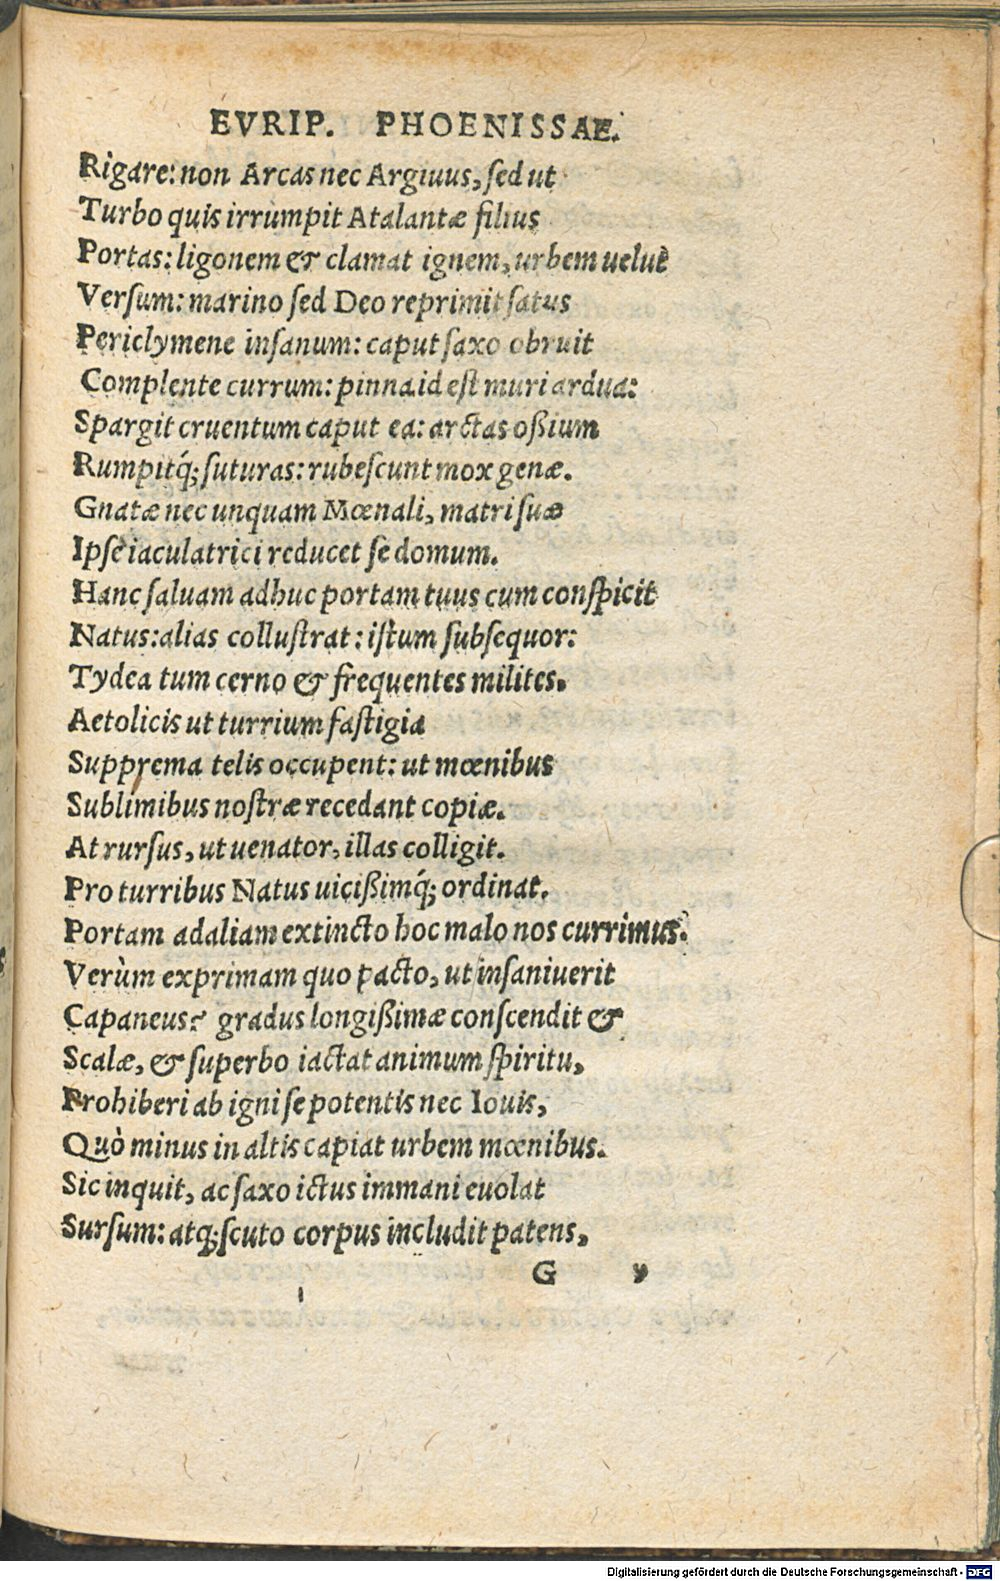 EVRIP. PHOENISSAE.
Rigare: non Arcas nec Argiuus, ſed ut
Turbo quis irrumpit Atalantæ filius
Portas: ligonem & clamat ignem, urbem uelut
Verſum: marino ſed Deo reprimit ſatus
Periclymene inſanum: caput ſaxo obruit
Complente currum: pinna id eſt muri ardua:
Spargit cruentum caput ea: arctas oßium
Rumpitq́; ſuturas: rubeſcunt mox genæ.
Gnatæ nec unquam Mœnali, matri ſuæ
Ipſe iaculatrici reducet ſe domum.
Hanc ſaluam adhuc portam tuus cum conſpicit
Natus: alias colluſtrat: iſtum ſubſequor:
Tydea tum cerno & frequentes milites.
Aetolicis ut turrium faſtigia
Supprema telis occupent: ut mœnibus
Sublimibus noſtræ recedant copiæ.
At rurſus, ut uenator, illas colligit.
Pro turribus Natus uicißimq́; ordinat.
Portam ad aliam extincto hoc malo nos currimus.
Verùm exprimam quo pacto, ut inſaniuerit
Capaneus? gradus longißimæ conſcendit &
Scalæ, & ſuperbo iactat animum ſpiritu,
Prohiberi ab igni ſe potentis nec Iouis,
Quò minus in altis capiat urbem mœnibus.
Sic inquit, ac ſaxo ictus immani euolat
Surſum: atq; ſcuto corpus includit patens,
G
Digitalisierung gefördert durch die Deutsche Forschungsgemeinschaft - DFG